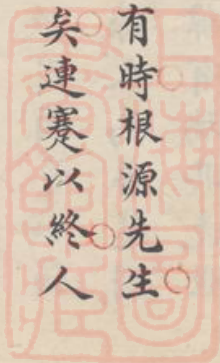 有時根源先生
矣連蹇以終人